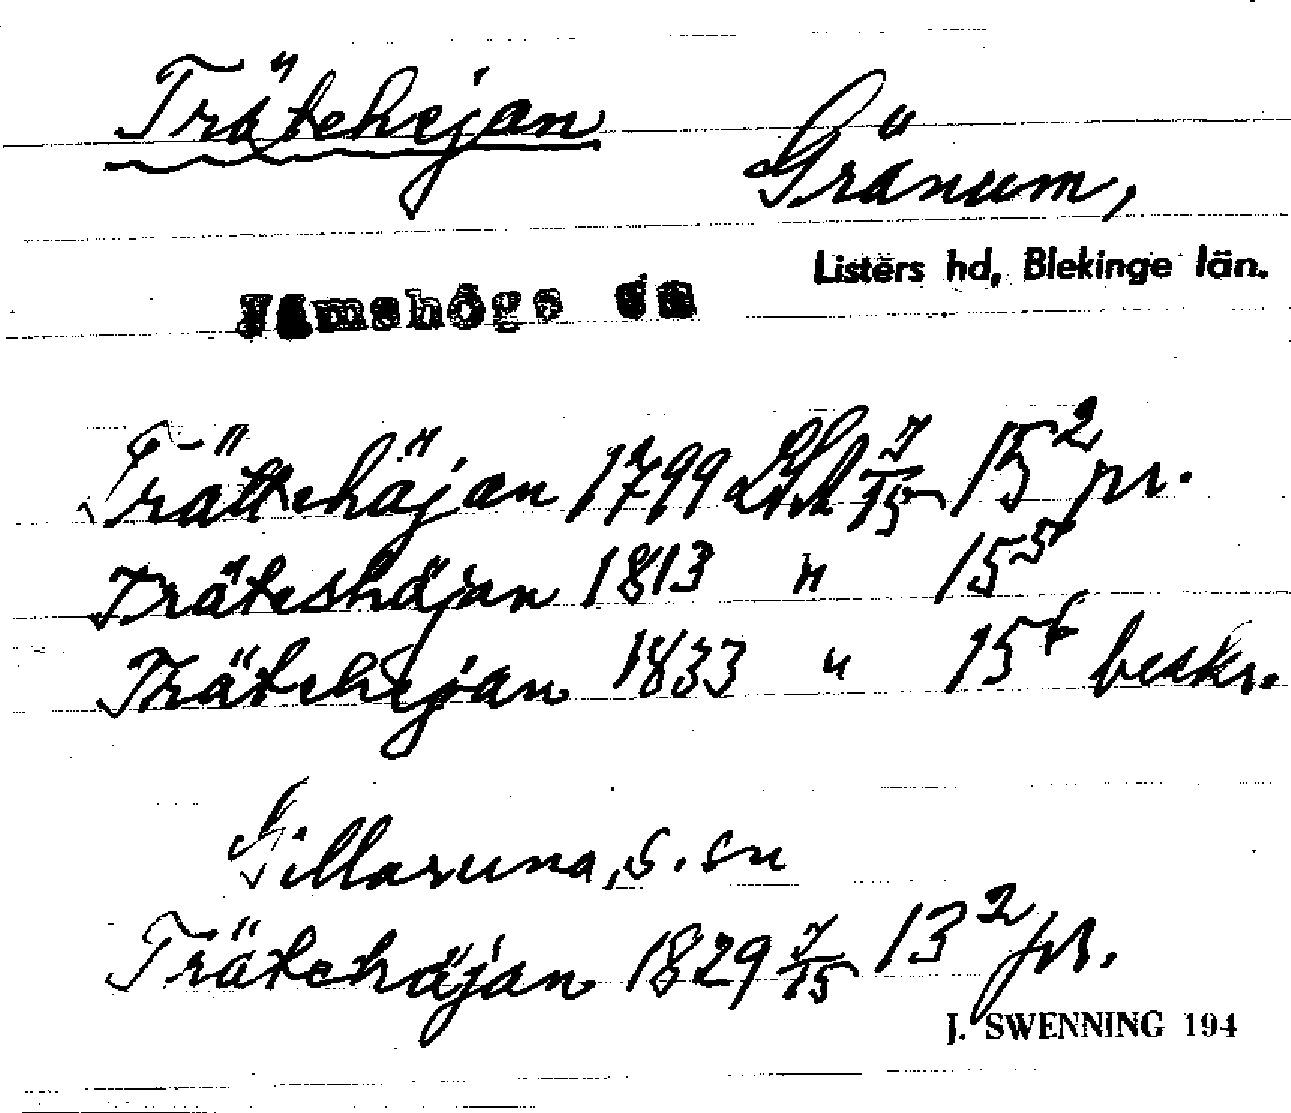 Trätehejan
Gränum,
Listers hd, Blekinge län.
Jämshögs sn
Trättehäjan 1799 LHd 7/15 15² pr.
Träteshäjan 1813 " 15⁵
Trätehejan 1833 " 15⁶ beskr.
Gillaruna, s. sn
Trätehäjan 1829 7/15 13² pr.
J. SWENNING 194